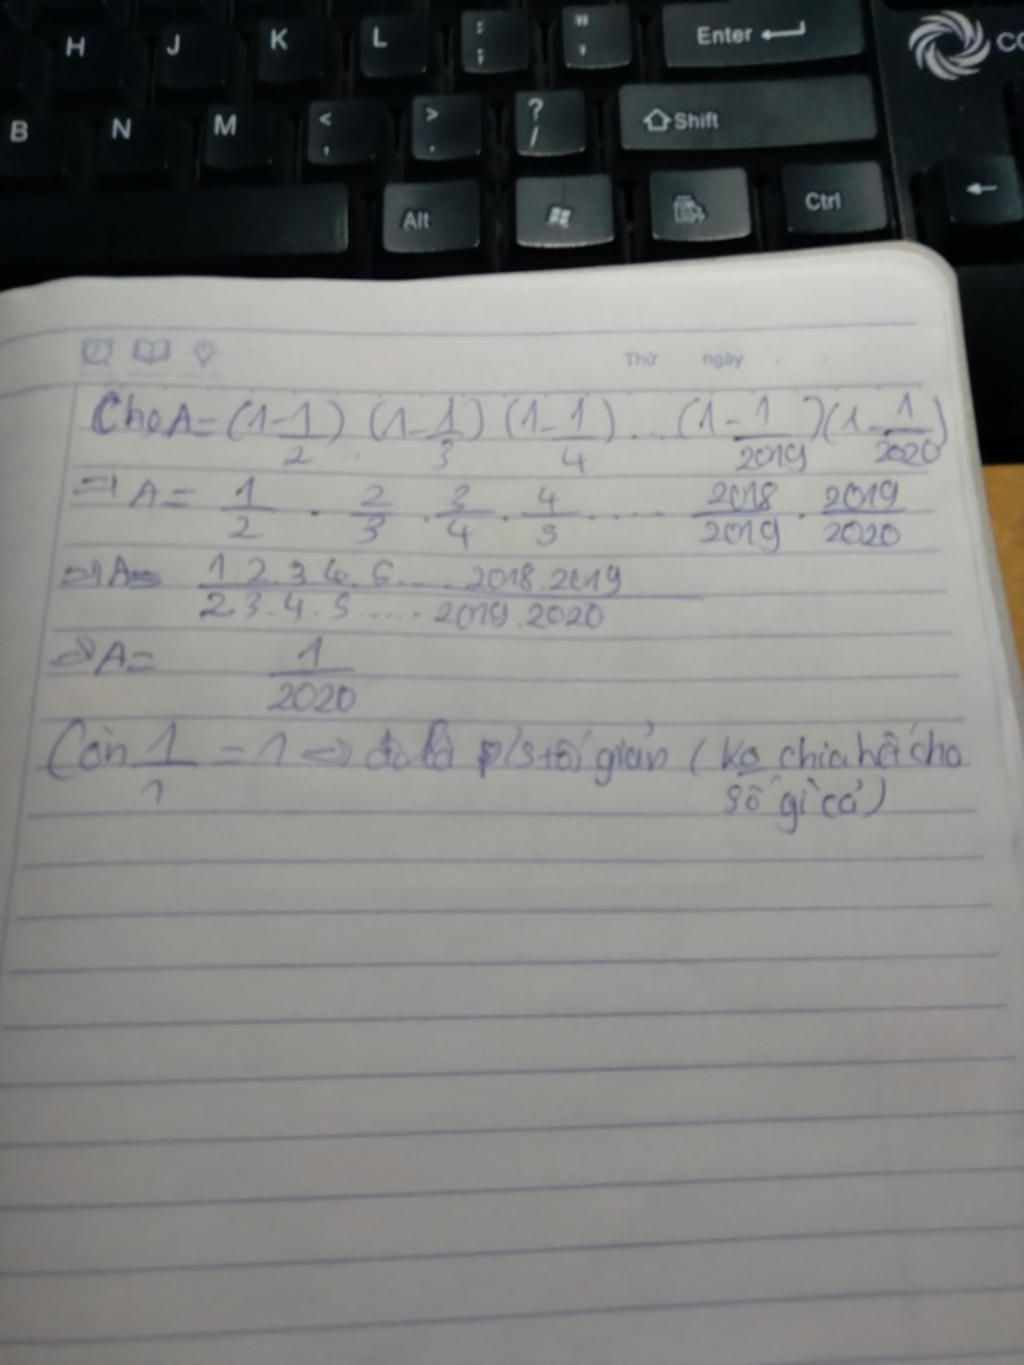 H J K L : ; " ' Enter
B N M < , > . ? / Shift
Alt Ctrl
Thứ ngày
Cho A = (1 - 1/2) (1 - 1/3) (1 - 1/4) ... (1 - 1/2019)(1 - 1/2020)
=> A = 1/2 . 2/3 . 3/4 . 4/5 ..... 2018/2019 . 2019/2020
=> A = 1 2.3 4. 5.....2018.2019 / 2 3.4.5 ..... 2019.2020
=> A = 1/2020
Còn 1/1 = 1 => đó là p/s tối giản (ko chia hết cho
số gì cả)